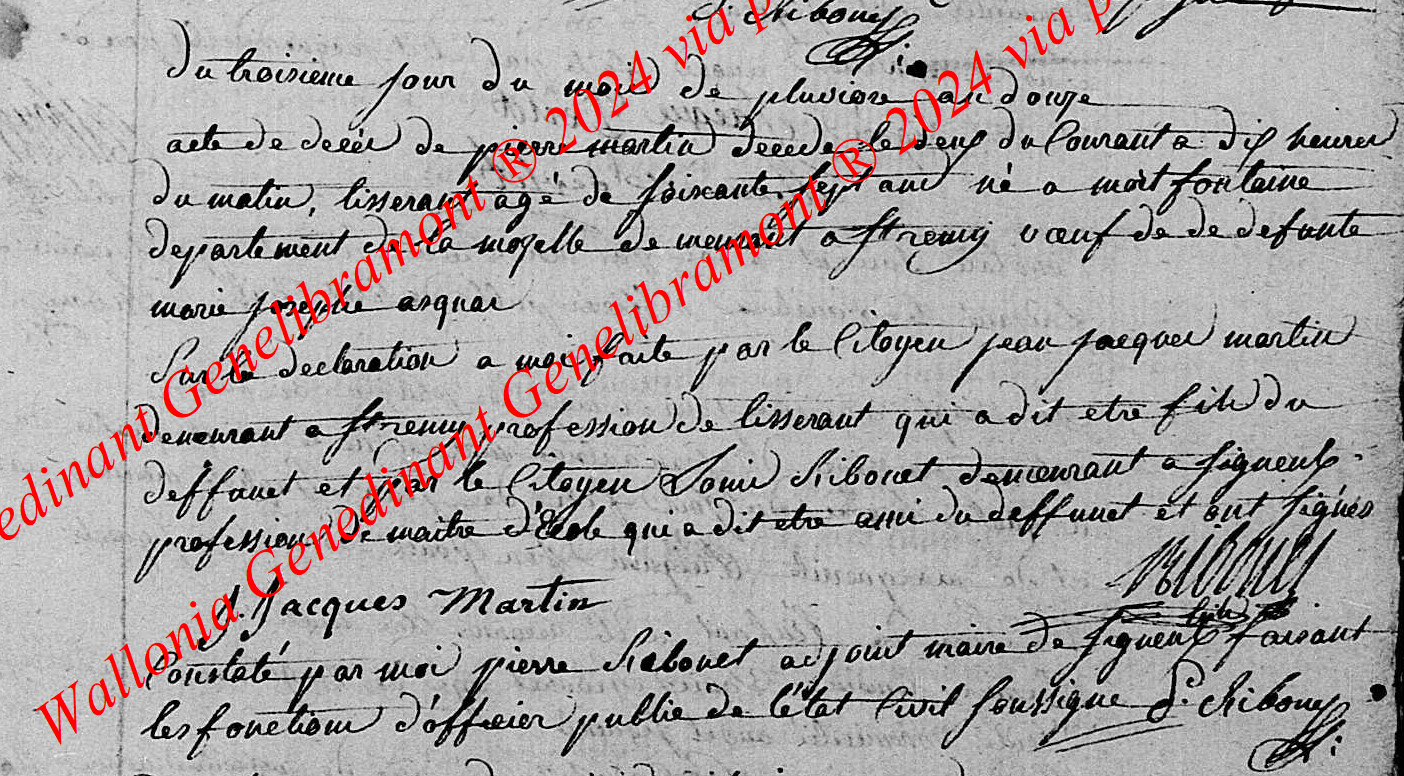 P. Ribouet
du troisieme jour du mois de pluviose an douze
acte de décés de pierre martin decede le deux du Courant a dix heures
du matin, tisserant agé de soixante sept ans né a mortfontaine
departement de la mozelle demeurant a st remy vœuf de de defunte
marie josephe
Sur la declaration a moi faite par le Citoyen jean jacques martin
demeurant a st remy profession de tisserant qui a dit etre fils du
deffunct et par le Citoyen Louis Ribouet demeurant a signeulx
profession de maitre d'Ecole qui a dit etre ami du deffunct et ont signés
J. Jacques Martin
Constaté par moi pierre Ribouet adjoint maire de signeulx faisant
les fonctions d'officier public de l'état Civil soussigne P. Ribouet
Wallonia Genedinant Genelibramont ® 2024 via p
edinant Genelibramont ® 2024 via p